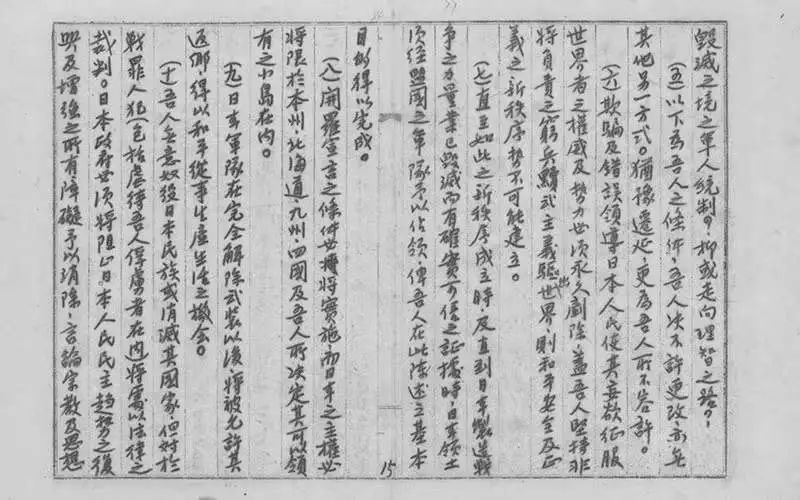 毀滅之境之軍人統制？抑或走向理智之路？
(五)以下為吾人之條件，吾人決不許更改，亦無
其他另一方式。猶豫遷延，更為吾人所不容許。
(六)欺騙及錯誤領導日本人民使其妄欲征服
世界者之權威及勢力必須永久剷除，蓋吾人堅持非
將負責之窮兵黷武主義驅出世界，則和平安全及正
義之新秩序勢不可能建立。
(七)直至如此之新秩序成立時，及直到日本製造戰
爭之力量業已毀滅而有確實可信之証據時，日本領土
須經盟國之軍隊予以佔領，俾吾人在此陳述之基本
目的得以完成。
(八)開羅宣言之條件必將實施，而日本之主權必
將限於本州，北海道，九州，四國及吾人所決定其可以領
有之小島在內。
(九)日本軍隊在完全解除武裝以後，將被允許其
返鄉，得以和平從事生產生活之機会。
(十)吾人無意奴役日本民族或消滅其國家，但對於
戰罪人犯(包括虐待吾人俘虜者在內)將處以法律之
裁判。日本政府必須將阻止日本人民民主趨勢之復
興及增強之所有障礙予以消除，言論宗教及思想
15